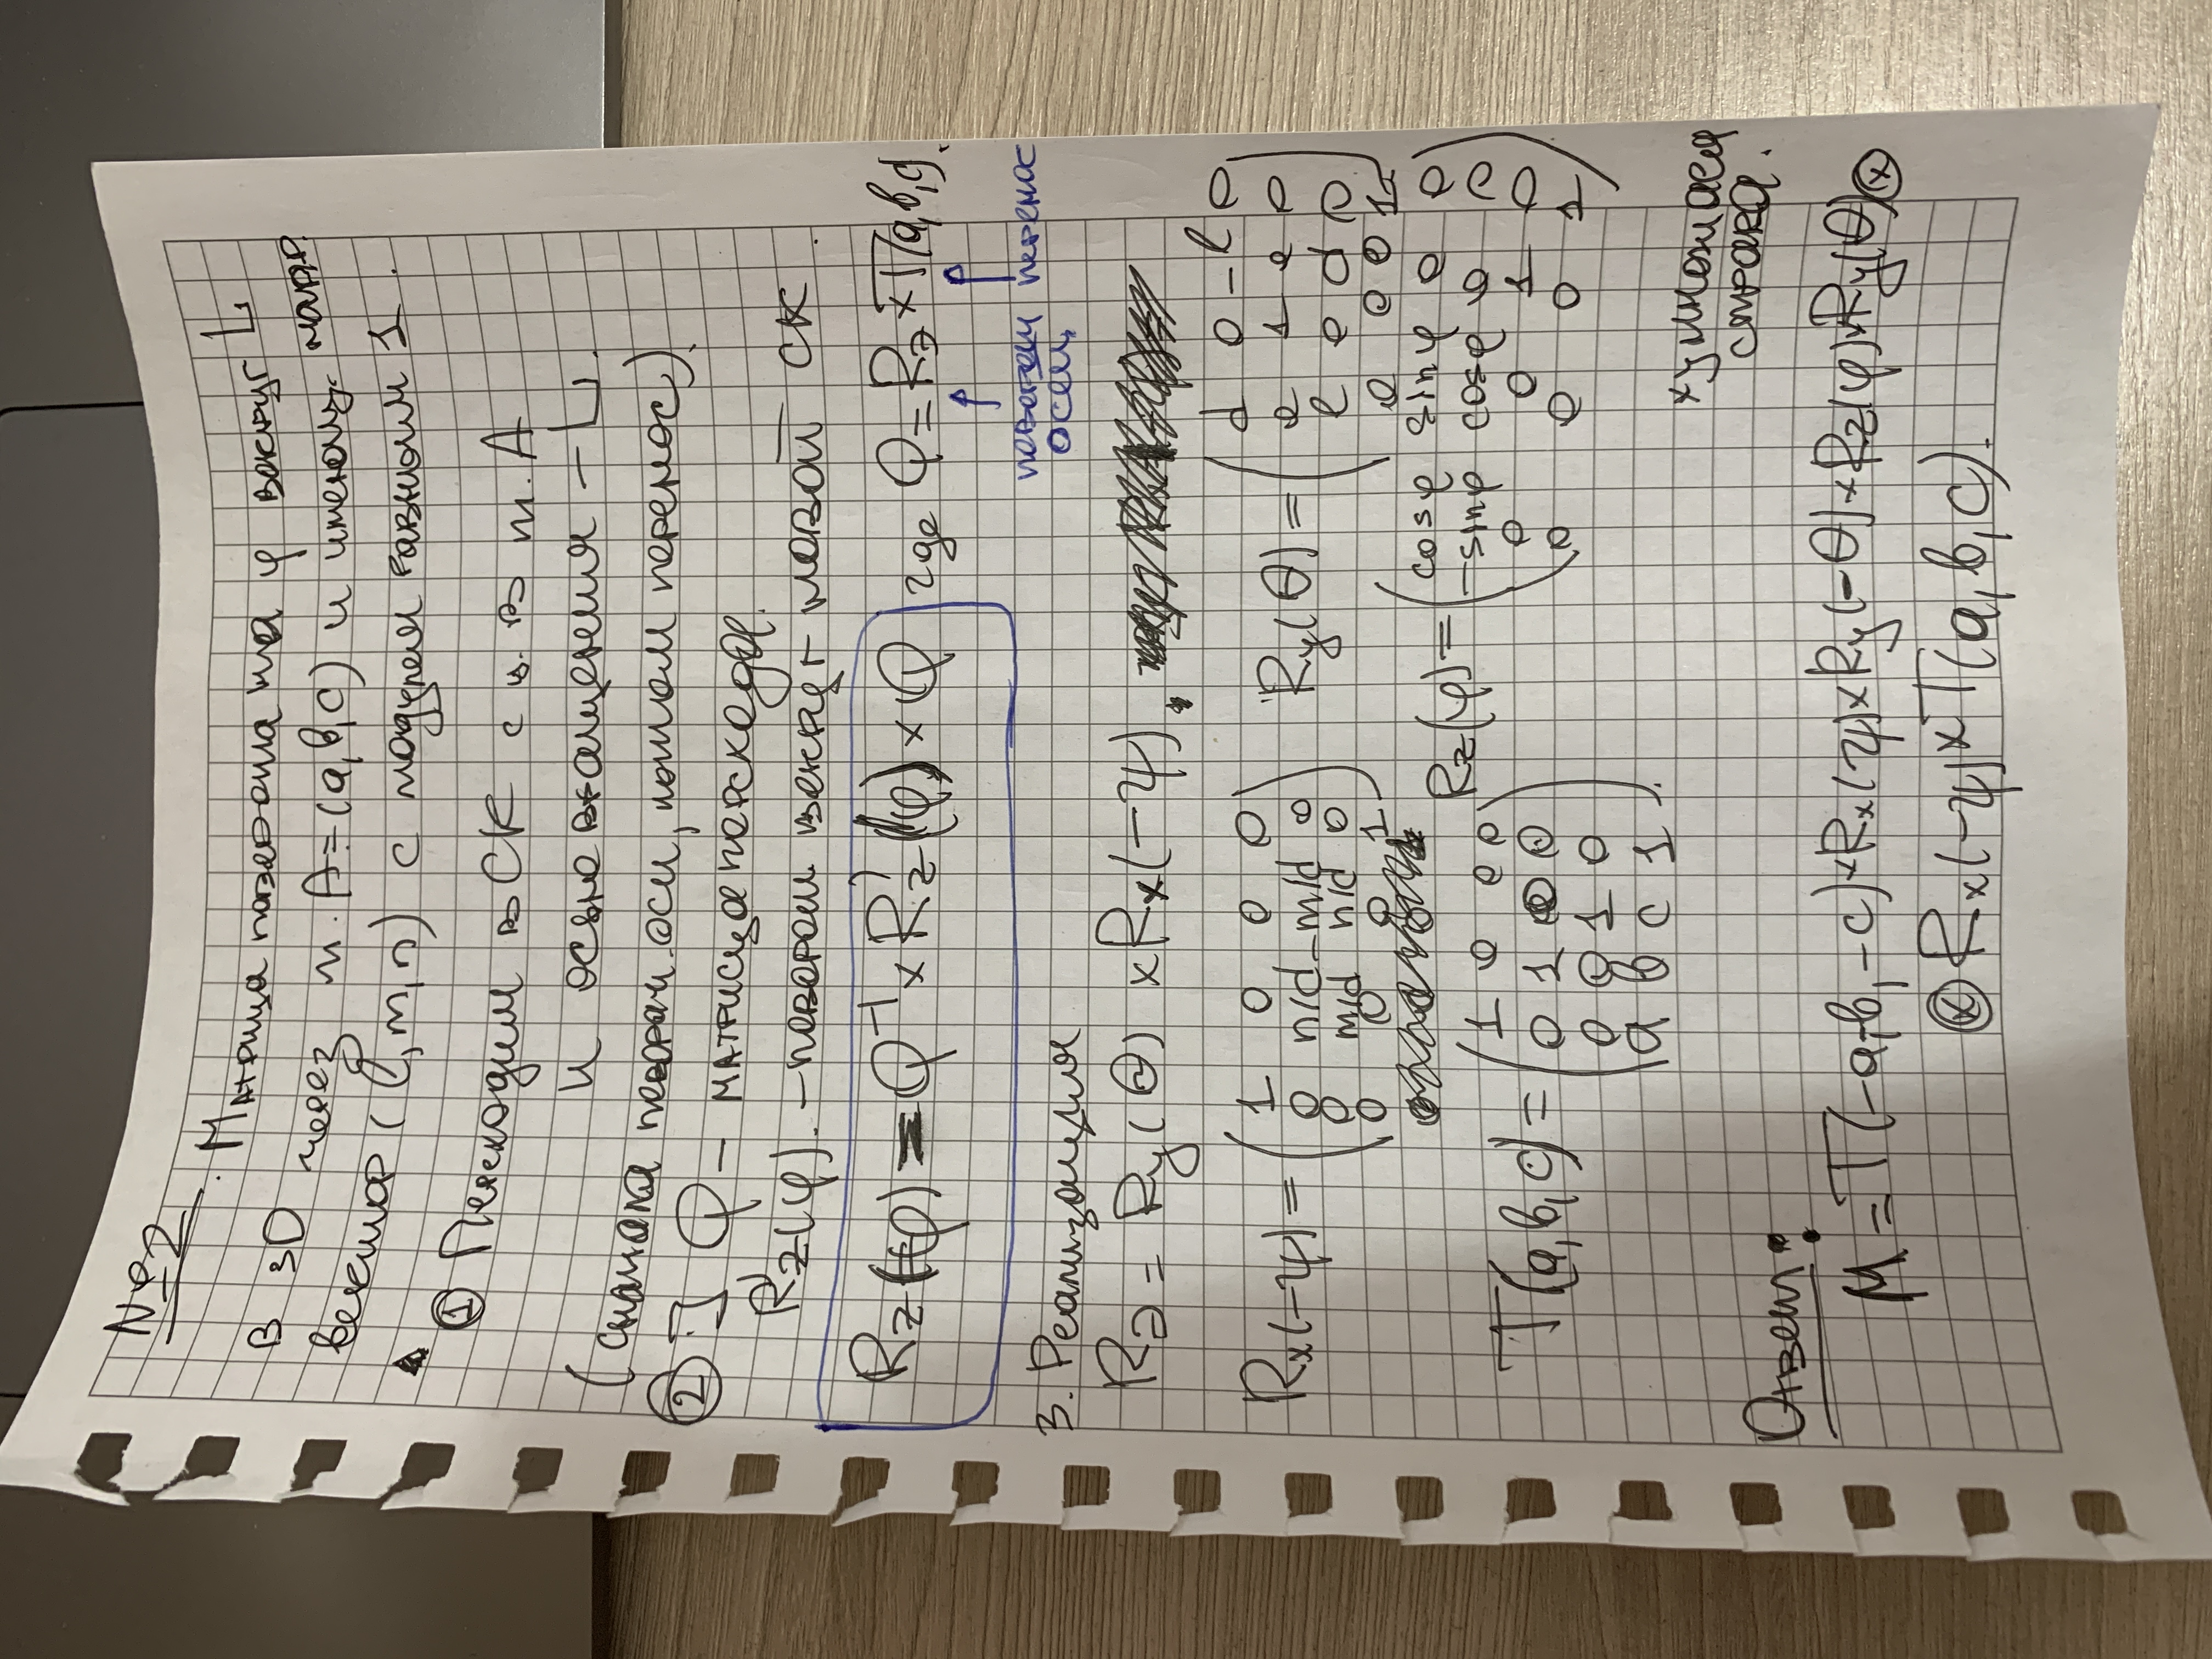 №2. Матрица поворота на φ вокруг L
в 3D через т. A=(a,b,c) и имеющ. напр.
вектор (l,m,n) с модулем равным 1.
① Переходим в СК с ц. в т. A
и осью вращения – L.
(сначала поворач. оси, потом перенос).
② ] Q – матрица перехода.
R'z(φ). – поворот вокруг новой СК.
Rz(φ) = Q⁻¹ × R'z(φ) × Q где Q = R∂ × T(a,b,c).
поворот перенос
осей
3. Реализация
R∂ = Ry(θ) × Rx(-ψ).
Rx(-ψ) = Ry(θ) =
1 0 0 0 d 0 -l 0
0 n/d -m/d 0 0 1 0 0
0 m/d n/d 0 l 0 d 0
0 0 0 1 0 0 0 1
T(a,b,c) = Rz(φ) =
1 0 0 0 cosφ sinφ 0 0
0 1 0 0 -sinφ cosφ 0 0
0 0 1 0 0 0 1 0
a b c 1 0 0 0 1
×умножаем
справа.
Ответ:
M = T(-a,-b,-c) × Rx(ψ) × Ry(-θ) × Rz(φ) × Ry(θ) ⊗
⊗ Rx(-ψ) × T(a,b,c).